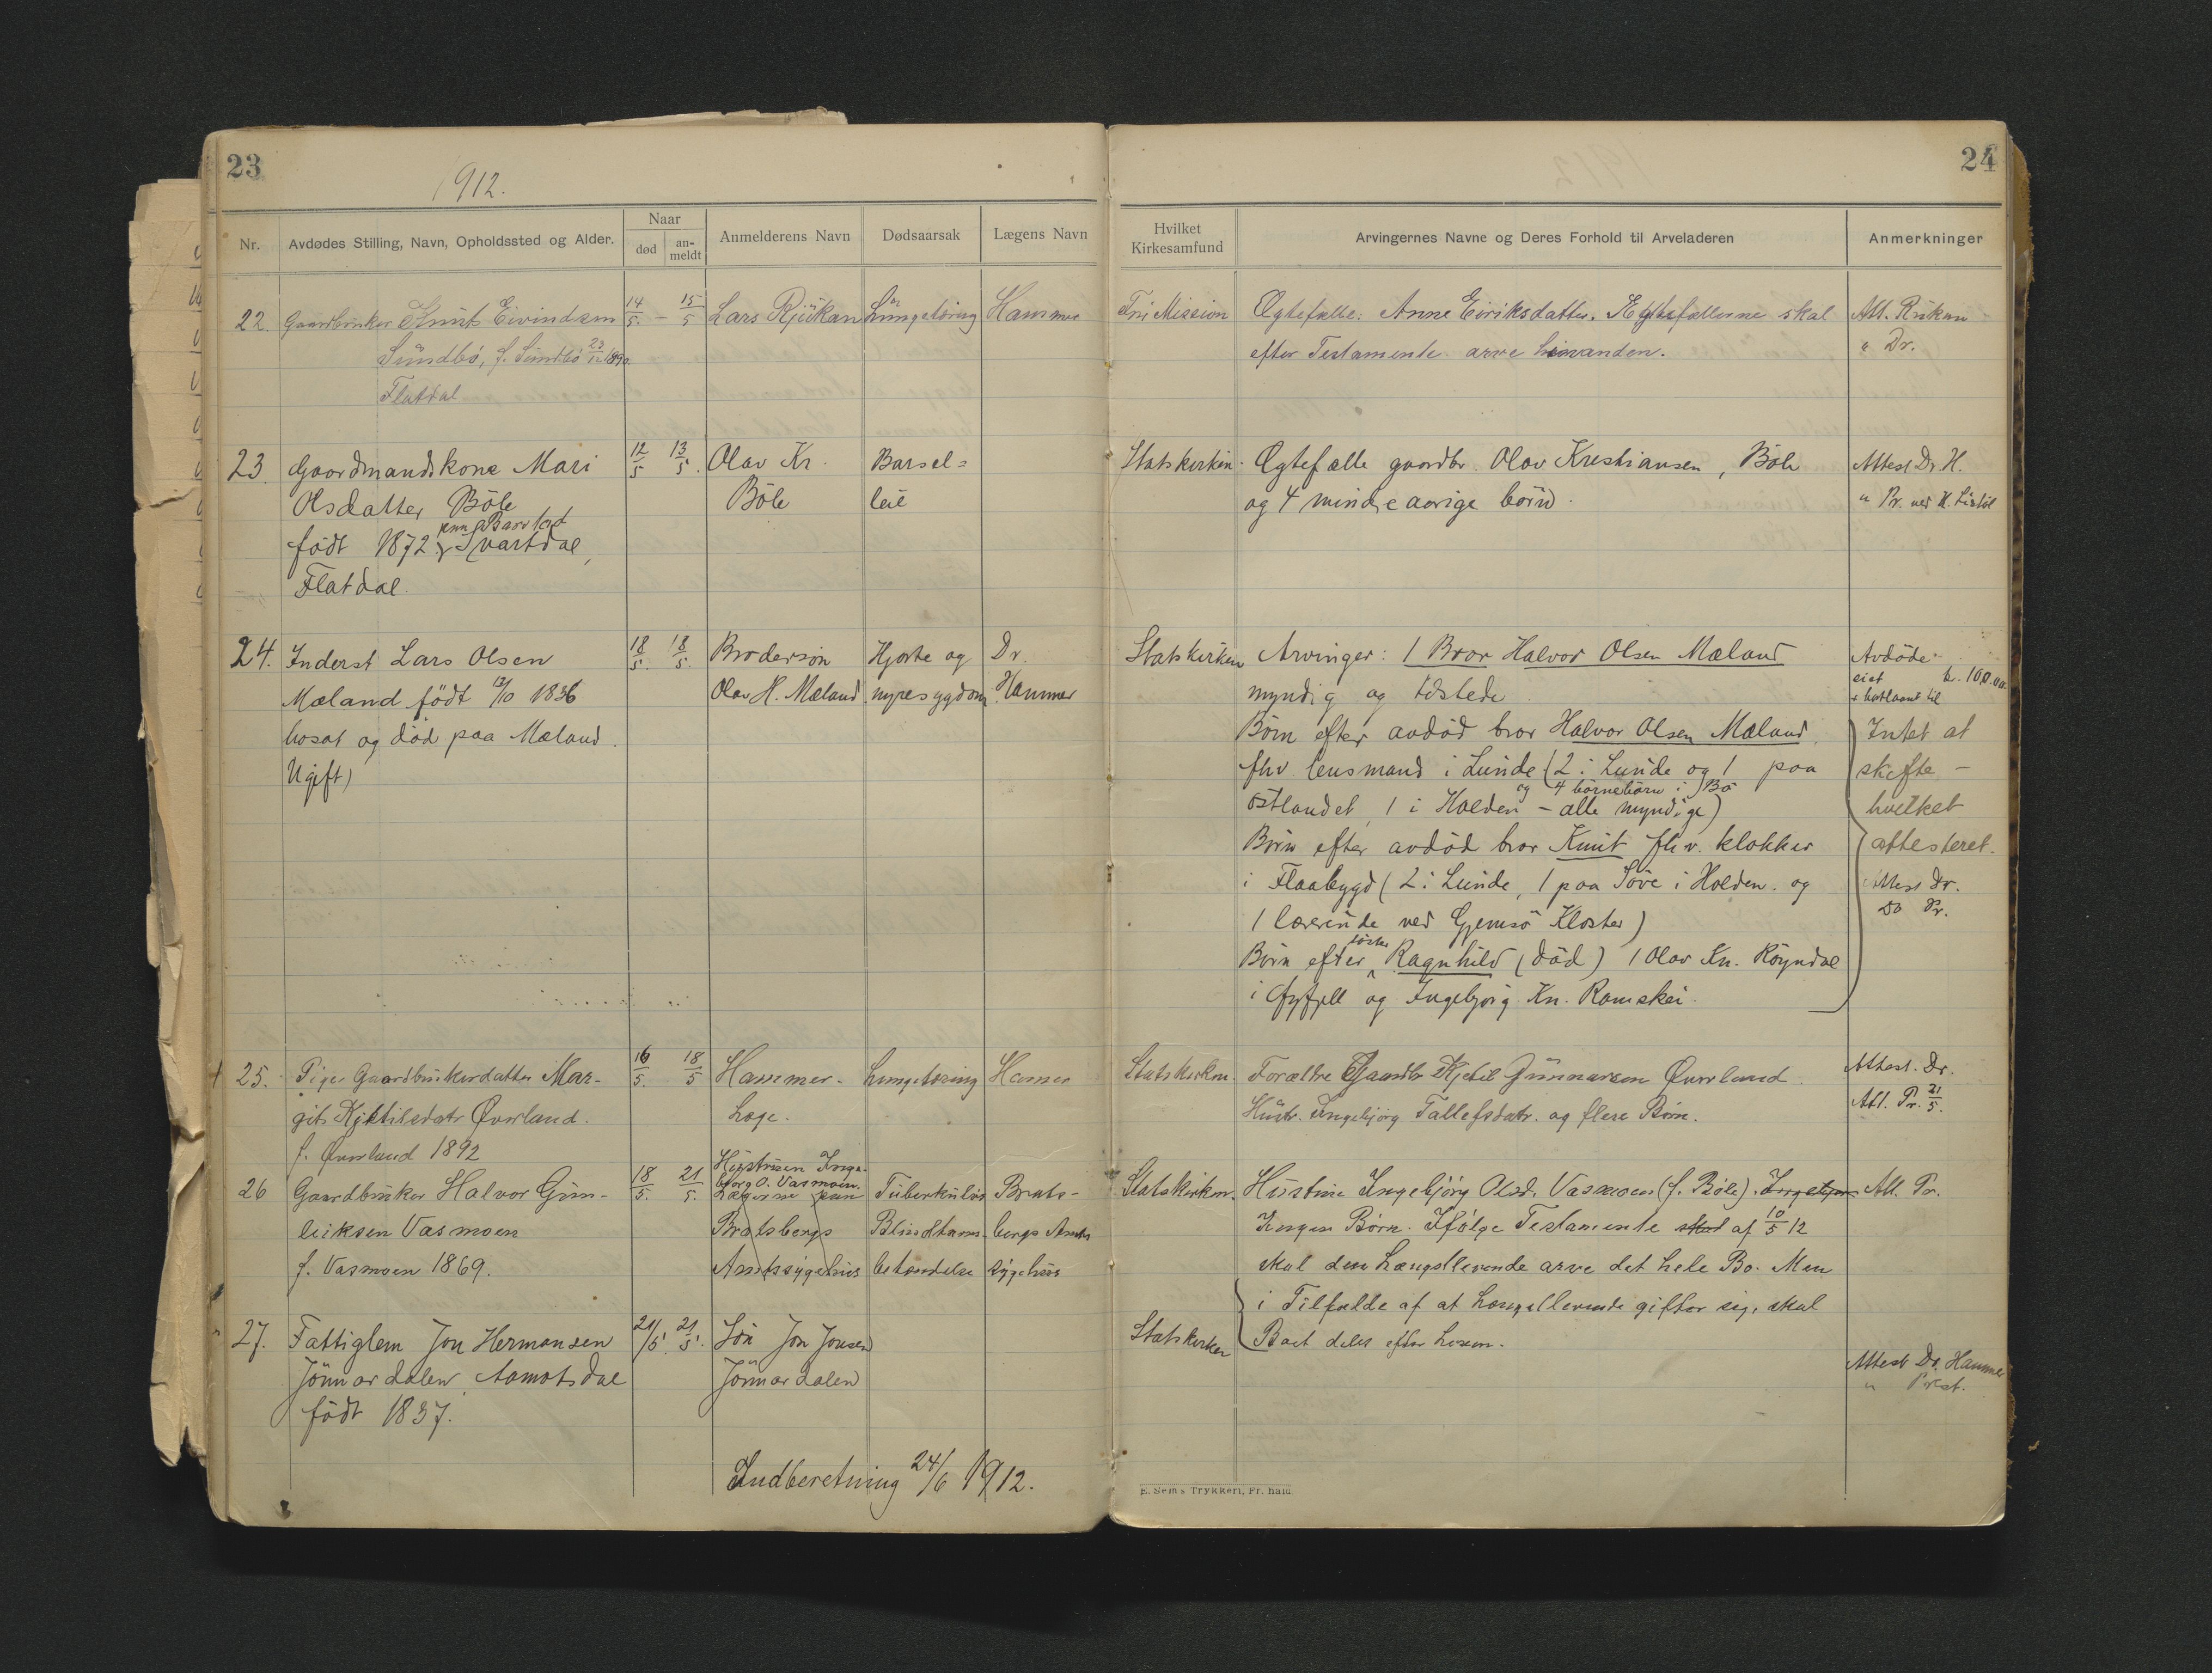 23
1912.
Nr.
Avdødes Stilling, Navn, Opholdssted og Alder.
Naar
død
an-
meldt
Anmelderens Navn
Dødsaarsak
Lægens Navn
22. Gaardbruker Knut Eivindsen 14/5. – 15/5 Lars Rjukan Lungetæring Hammer
Sundbö, f. Sundbö 1890.
Flatdal
23. Gaardmandskone Mari 12/5 13/5. Olav Kr. Barsel=
Olsdatter Böle Böle leie
født 1872 Svartdal,
Flatdal.
24. Inderst Lars Olsen 18/5. 18/5. Brodersön Hjerte og Dr.
Mæland født 12/10 1836 Olav H. Mæland nyresygdom Hammer
bosat og död paa Mæland.
Ugift)
25. Pige Gaardbrukerdatter Mar- 16/5. 18/5 Hammer- Lungetæring Hamer
git Kjetilsdatr Øverland. Læge.
f. Øverland 1892
26 Gaardbruker Halvor Gun- 18/5. 21/5. Hustruen Inge-
bjorg O. Vasmoen.
Lægerne Tuberkuløs Brats-
leiksen Vasmoen Bratsbergs Blindtarms- bergs Amts
f. Vasmoen 1869. Amtssygehus betændelse sygehus
27. Fattiglem Jon Hermansen 21/5. 21/5. Sön Jon Jonsen
Jönnardalen, Aamotsdal Jönnardalen
født 1837.
Indberetning 24/6 1912.
24
Hvilket
Kirkesamfund
Arvingernes Navne og Deres Forhold til Arveladeren
Anmerkninger
Fri Mission Ægtefælle: Anne Eiriksdatter. Ægtefællerne skal Att. Rjukan
efter Testamente arve hinanden. " Dr.
Statskirken. Ægtefælle gaardbr. Olav Kristiansen, Böle Attest Dr. H.
og 4 mindreaarige börn. " Pr. ved H.
Statskirken Arvinger: 1 Bror Halvor Olsen Mæland Avdöde
myndig og tilstede eiet kr. 100.00
Börn efter avdöd bror Halvor Olsen Mæland, Intet at
fhv. lensmand i Lunde (2 i Lunde og 1 paa skifte –
og 4 börnebörn i Bö
östlandet, 1 i Holden – alle myndige) hvilket
Börn efter avdöd bror Knut fhv. klokker attesteret.
i Flaabygd (2 i Lunde, 1 paa Söve i Holden. og Attest Dr.
Do Pr.
1 lærerinde ved Gjemsö Kloster)
söster
Börn efter Ragnhild (död) 1 Olav Kn. Röyndal
i og Ingebjörg Kn. Ramskei.
Statskirken. Forældre Gaardbr Kjetil Gunnarsen Øverland. Attest. Dr.
Hustr. Ingebjörg Tallefsdatr. og flere Börn. Att. Pr. 21/5.
Statskirken. Hustru Ingebjörg Olsd. Vasmoen (f. Böle). Ingebjør Att. Pr.
Ingen Börn. Ifølge Testamente skal af 10/5 12
skal den Længstlevende arve det hele Bo. Men
i Tilfælde af at Længstlevende gifter seg, skal
Statskirken Boet deles efter Loven.
Attest Dr. Hammer
" Prest.
E. Sem's Trykkeri, Fr.hald